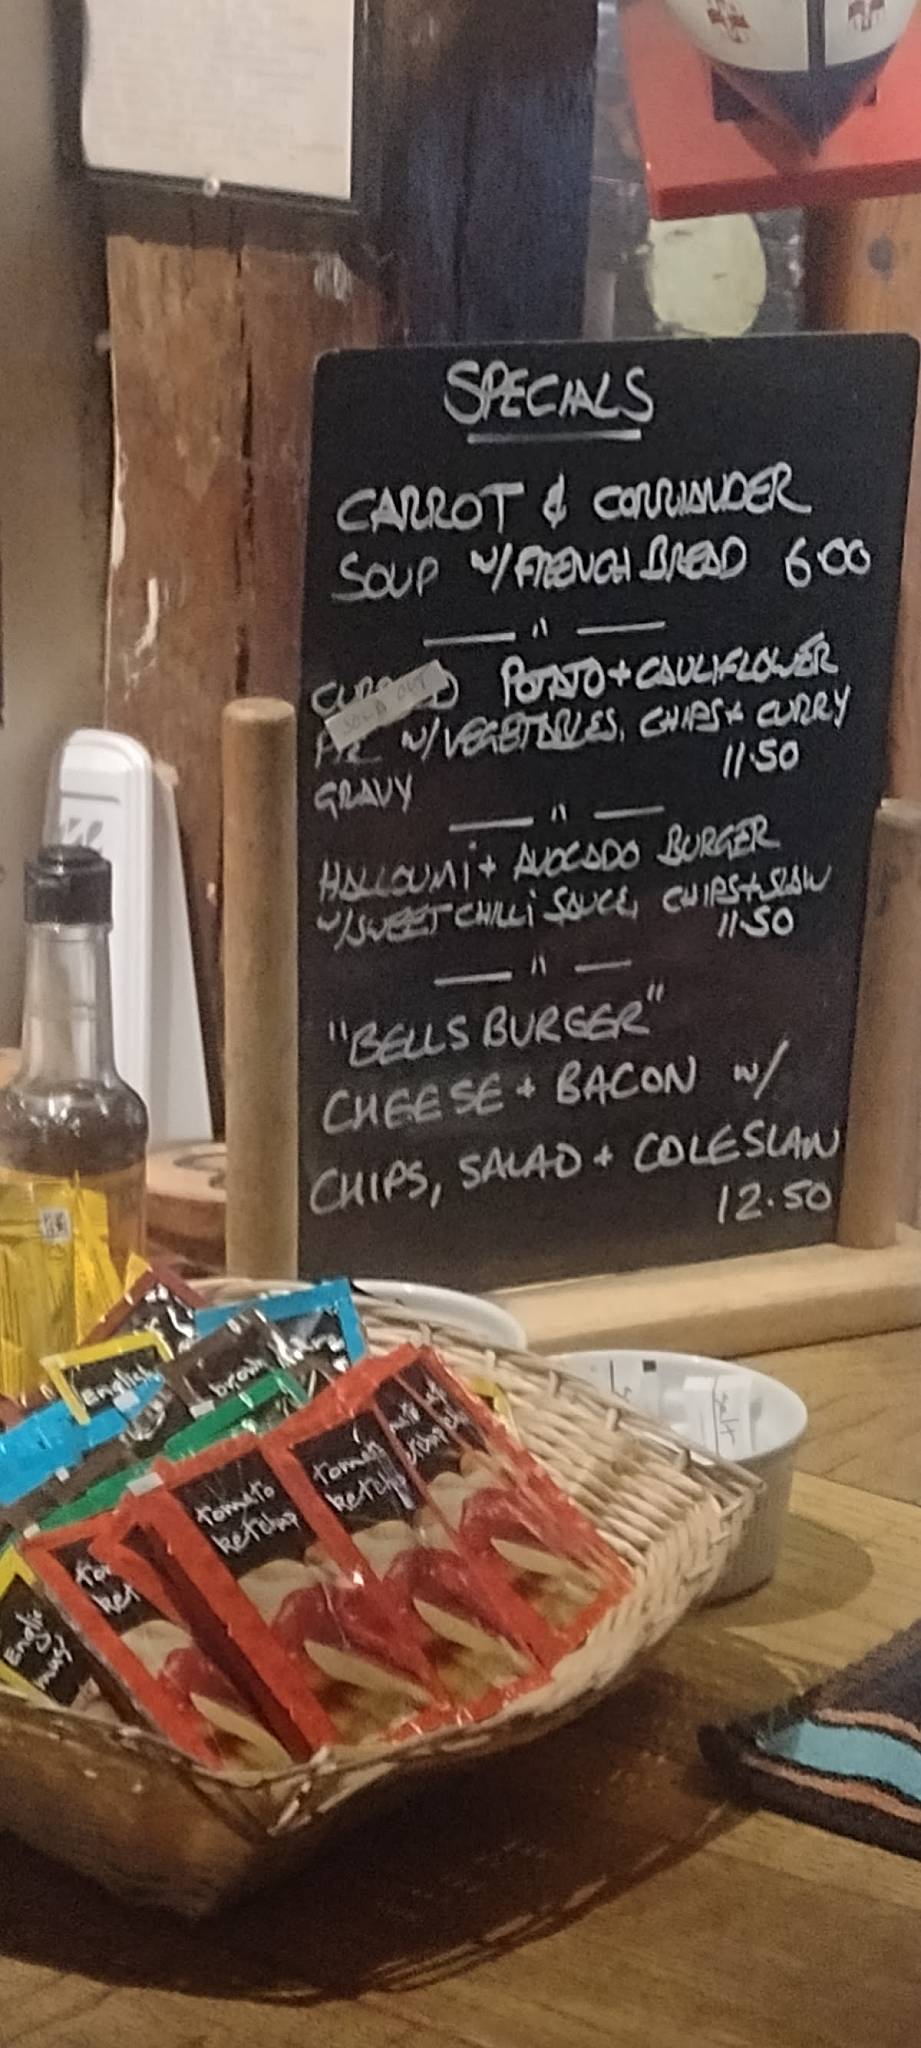 SPECIALS
CARROT & CORRIANDER
SOUP W/ FRENCH BREAD 6.00
— " —
POTATO + CAULIFLOWER
SOLD OUT
PIE W/ VEGETABLES, CHIPS + CURRY
GRAVY 11.50
— " —
HALLOUMI + AVOCADO BURGER
W/ SWEET CHILLI SAUCE, CHIPS + SLAW
11.50
— " —
"BELLS BURGER"
CHEESE + BACON W/
CHIPS, SALAD + COLESLAW
12.50
English
brown
tomato
ketchup
tomato
ketchup
salt